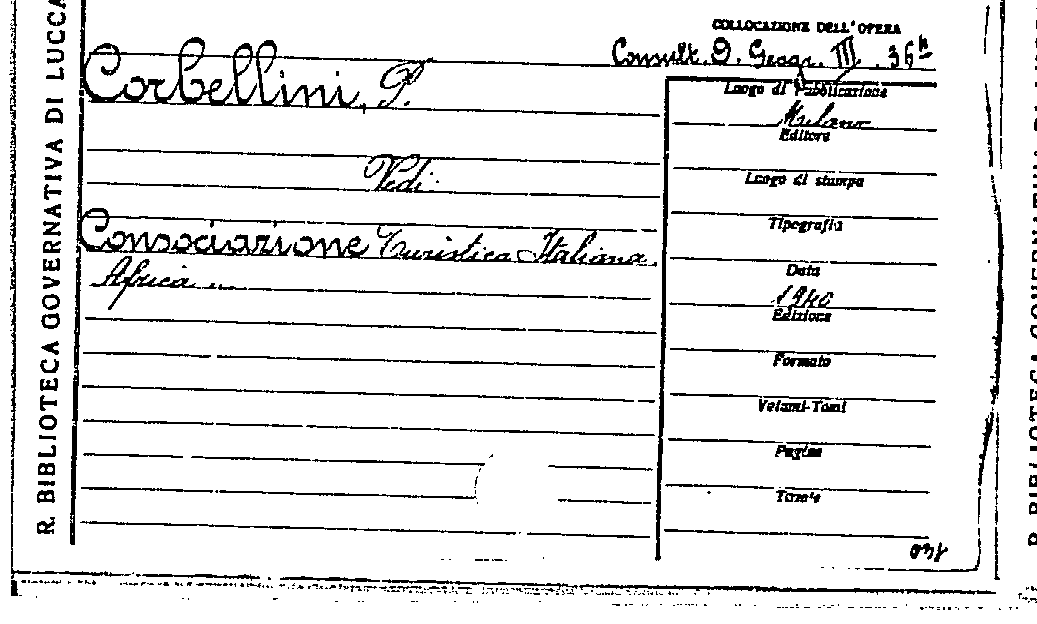 R. BIBLIOTECA GOVERNATIVA DI LUCCA
COLLOCAZIONE DELL'OPERA
Consult. D. Geogr. III. 36 h
Corbellini, P.
Vedi:
Consociazione Turistica Italiana.
Africa ...
Luogo di Pubblicazione
Milano
Editore
Luogo di stampa
Tipografia
Data
1940
Edizione
Formato
Volumi-Tomi
Pagine
Tavole